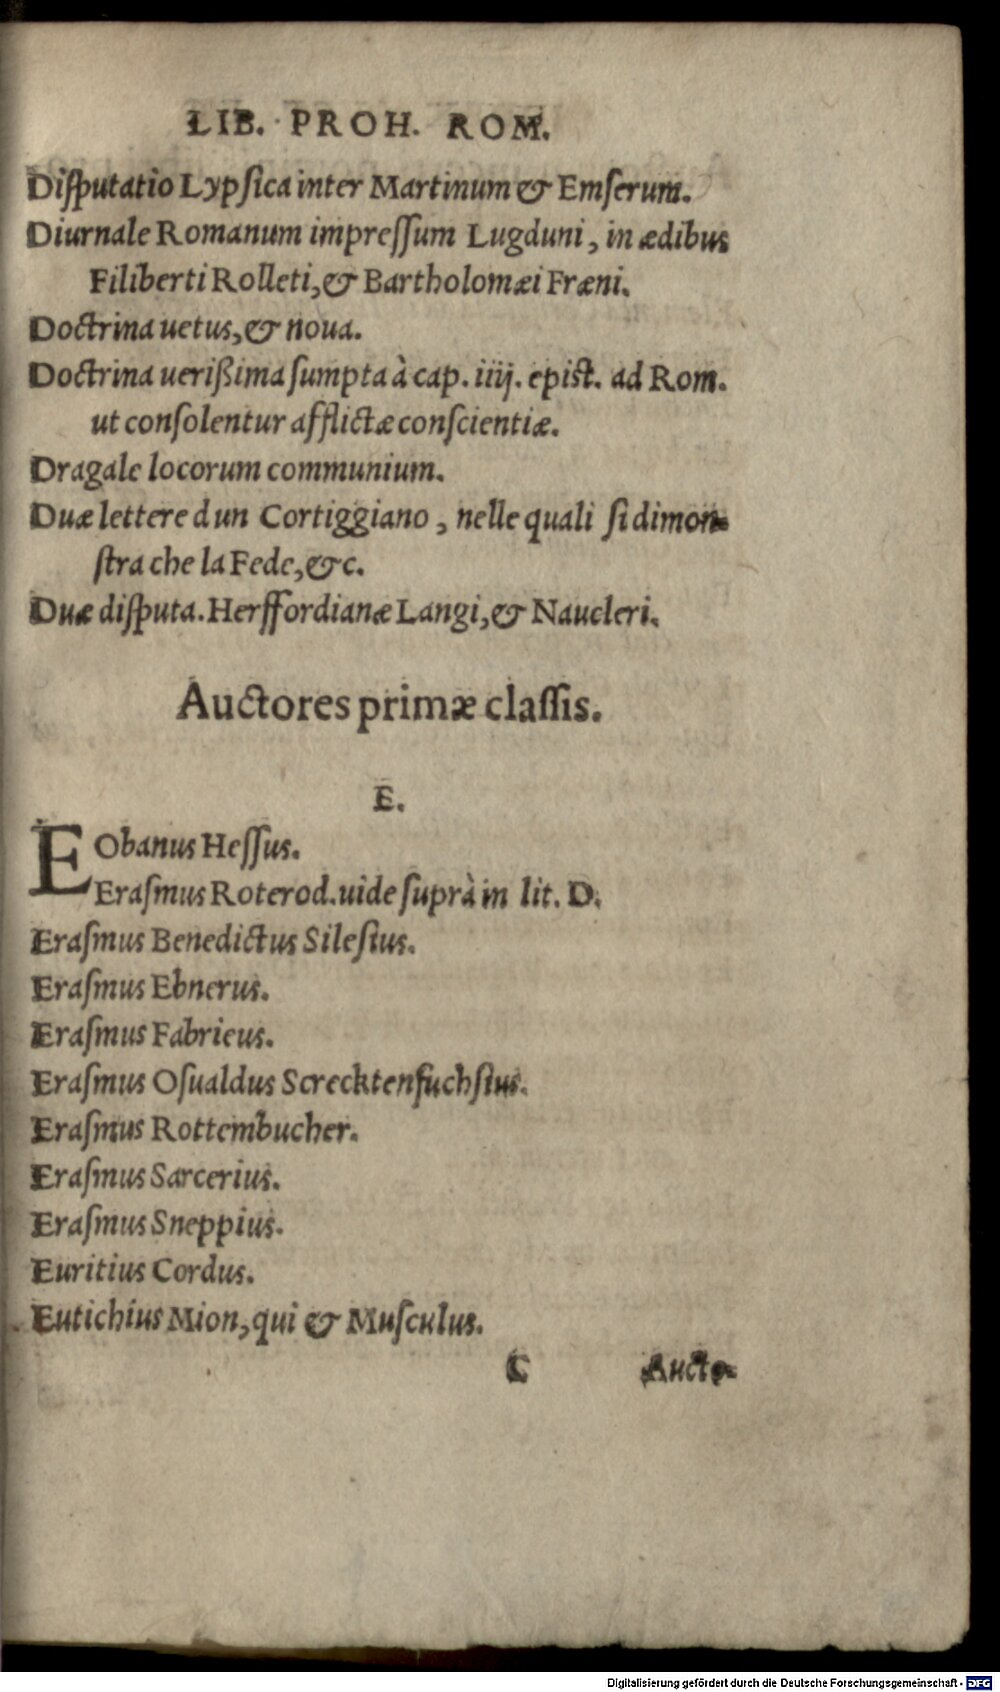 LIB. PROH. ROM.
Diſputatio Lypſica inter Martinum & Emſerum.
Diurnale Romanum impreſſum Lugduni, in ædibus
Filiberti Rolleti, & Bartholomæi Fræni.
Doctrina uetus, & noua.
Doctrina uerißima ſumpta à cap. iiij. epiſt. ad Rom.
ut conſolentur afflictæ conſcientiæ.
Dragale locorum communium.
Duæ lettere d un Cortiggiano, nelle quali ſi dimon-
ſtra che la Fede, &c.
Duæ diſputa. Herffordianæ Langi, & Naucleri.
Auctores primæ claſſis.
E.
EObanus Heſſus.
Eraſmus Roterod. uide ſuprà in lit. D.
Eraſmus Benedictus Sileſius.
Eraſmus Ebnerus.
Eraſmus Fabricus.
Eraſmus Oſualdus Screcktenfuchſius.
Eraſmus Rottembucher.
Eraſmus Sarcerius.
Eraſmus Sneppius.
Euritius Cordus.
Eutichius Mion, qui & Muſculus.
C Aucto-
Digitalisierung gefördert durch die Deutsche Forschungsgemeinschaft - DFG